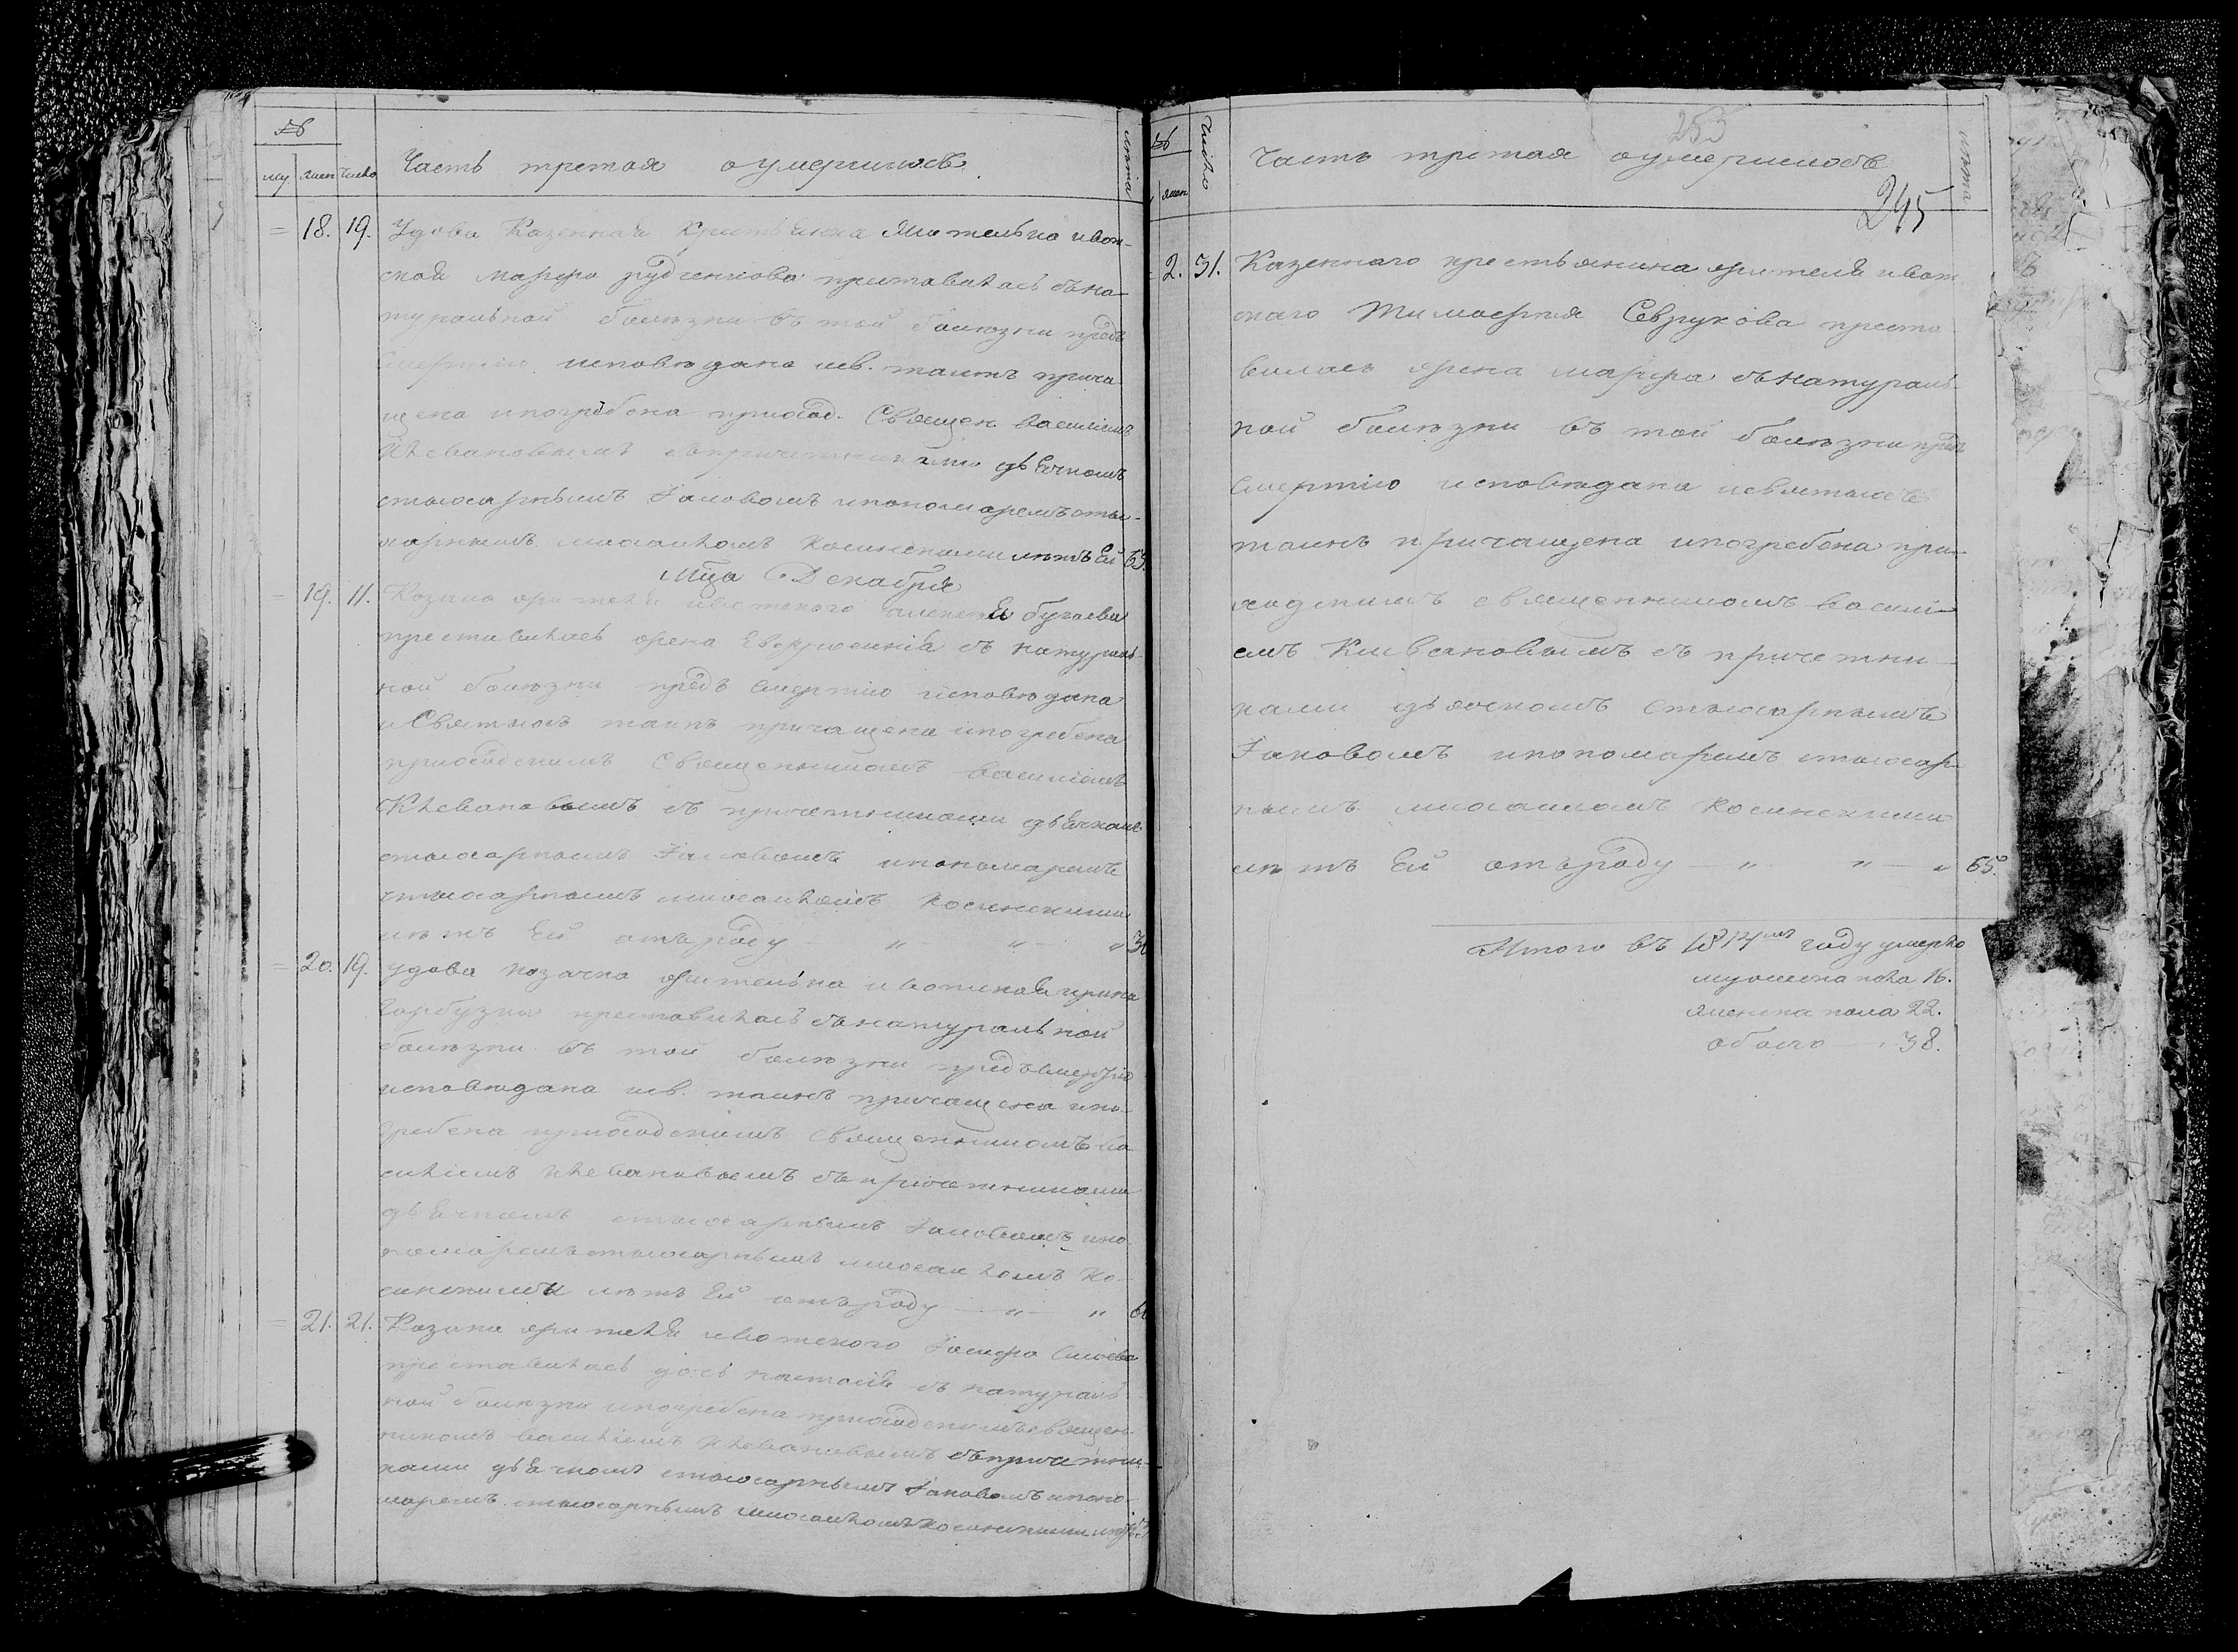 №
му. | жен | число | Часть третая оумершихъ | лѣта
= | 18. | 19. | Удова Казенная крестьянка жителька ивот-
ская марфа рудченкова преставилась съ на-
туральной болѣзни въ той болѣзни предъ
смертію исповѣдана исв. таинъ прича
щена ипогребена приход. Священ. василіемъ
Клевановымъ съпричетниками дьячкомъ
стихарнымъ Іаковомъ ипономаремъ стих-
арнымъ михаиломъ косинскими лѣтъ Ей 65.
Мца Декабря
= | 19. | 11. | Козака жителя ивотского алексея бугаева
преставилась жена Евфросинія съ натураль-
ной болѣзни предъ смертію исповѣдана
иСвятыхъ таинъ причащена ипогребена
приходскимъ Священникомъ василіемъ
Клевановымъ съ причетниками дьячкомъ
стихарнымъ Іаковомъ ипономаремъ
стихарнымъ михаиломъ косинскими
лѣтъ Ей отъроду — " — " — " 30
= | 20. | 19. | удова козачка жителька ивотская ирина
гарбузна преставилась сънатуральной
болѣзни въ той болѣзни предъсмертію
исповѣдана исв. таинъ причащена ипо-
гребена приходскимъ священникомъ ва
силіемъ клевановымъ съпричетниками
дьячкомъ стихарнымъ Іаковомъ ипо-
номаремъ стихарнымъ михаиломъ ко-
синскими лѣтъ Ей отъроду — " — "
= | 21. | 21. | Козака жителя ивотского Іосифа
преставилась дочь настасія съ натураль-
ной болѣзни ипогребена приходскимъ священ-
никомъ василіемъ клевановымъ съпричетни-
ками дьячкомъ стихарнымъ Іаковомъ ипоно-
маремъ стихарнымъ михаиломъ косинскими
№
жен | число | Часть третая оумершихъ | лѣта
253
245
2. | 31. | Казеннаго крестьянина жителя ивот
скаго Тимофея Севрукова преста
вилась жена марфа сънатураль-
ной болѣзни въ той болѣзни предъ
смертію исповѣдана исвятыхъ
таинъ причащена ипогребена при-
ходскимъ священникомъ василі-
емъ Клевановымъ съ причетни-
ками дьячкомъ стихарнымъ
Іаковомъ ипономаремъ стихар-
нымъ михаиломъ косинскими
лѣтъ Ей отъроду — " — " — " 65.
Итого въ 1814мъ году умерло
мужеска пола 16.
женска пола 22.
обоего — 38.